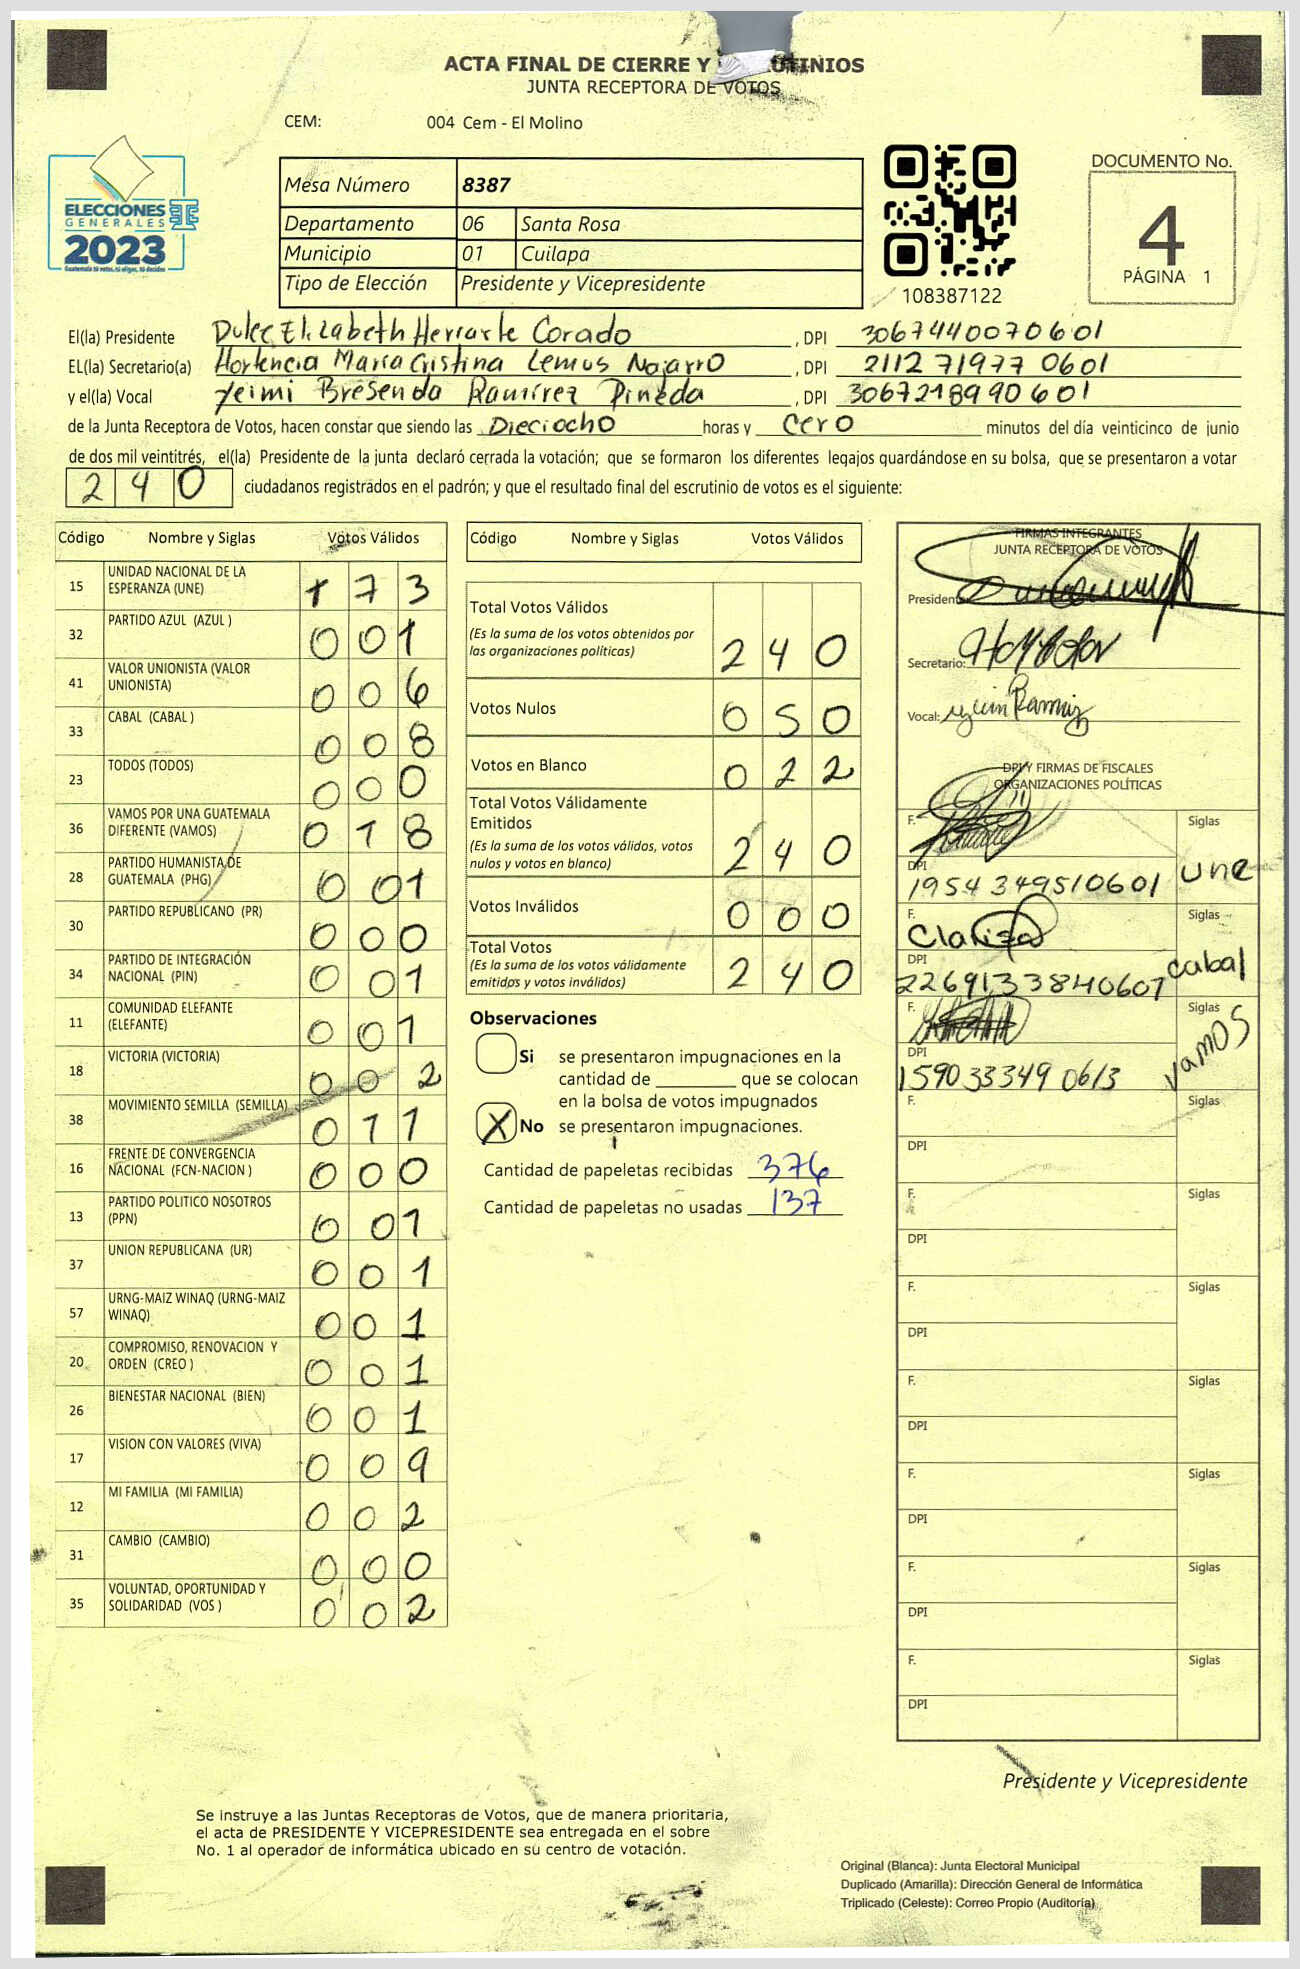 ACTA FINAL DE CIERRE Y
JUNTA RECEPTORA DE VOTOS
CEM: 004 Cem - El Molino
ELECCIONES
GENERALES
2023
Guatemala tú votas, tú eliges, tú decides
Mesa Número 8387
Departamento 06 Santa Rosa
Municipio 01 Cuilapa
Tipo de Elección Presidente y Vicepresidente
108387122
DOCUMENTO No.
4
PÁGINA 1
El(la) Presidente Dulce Elizabeth Herrarte Corado , DPI 3067440070601
EL(la) Secretario(a) Hortencia Maria Cristina Lemus Najarro , DPI 2112 71977 0601
y el(la) Vocal Yeimi Bresenda Ramírez Pineda , DPI 3067218990601
de la Junta Receptora de Votos, hacen constar que siendo las Dieciocho horas y cero minutos del día veinticinco de junio
de dos mil veintitrés, el(la) Presidente de la junta declaró cerrada la votación; que se formaron los diferentes legajos guardándose en su bolsa, que se presentaron a votar
240 ciudadanos registrados en el padrón; y que el resultado final del escrutinio de votos es el siguiente:
Código Nombre y Siglas Votos Válidos
15 UNIDAD NACIONAL DE LA ESPERANZA (UNE) 173
32 PARTIDO AZUL (AZUL ) 001
41 VALOR UNIONISTA (VALOR UNIONISTA) 006
33 CABAL (CABAL ) 008
23 TODOS (TODOS) 000
36 VAMOS POR UNA GUATEMALA DIFERENTE (VAMOS) 018
28 PARTIDO HUMANISTA DE GUATEMALA (PHG) 001
30 PARTIDO REPUBLICANO (PR) 000
34 PARTIDO DE INTEGRACIÓN NACIONAL (PIN) 001
11 COMUNIDAD ELEFANTE (ELEFANTE) 001
18 VICTORIA (VICTORIA) 002
38 MOVIMIENTO SEMILLA (SEMILLA) 011
16 FRENTE DE CONVERGENCIA NACIONAL (FCN-NACION ) 000
13 PARTIDO POLITICO NOSOTROS (PPN) 001
37 UNION REPUBLICANA (UR) 001
57 URNG-MAIZ WINAQ (URNG-MAIZ WINAQ) 001
20 COMPROMISO, RENOVACION Y ORDEN (CREO ) 001
26 BIENESTAR NACIONAL (BIEN) 001
17 VISION CON VALORES (VIVA) 009
12 MI FAMILIA (MI FAMILIA) 002
31 CAMBIO (CAMBIO) 000
35 VOLUNTAD, OPORTUNIDAD Y SOLIDARIDAD (VOS ) 002
Código Nombre y Siglas Votos Válidos
Total Votos Válidos
(Es la suma de los votos obtenidos por
las organizaciones políticas) 240
Votos Nulos 050
Votos en Blanco 022
Total Votos Válidamente
Emitidos
(Es la suma de los votos válidos, votos
nulos y votos en blanco) 240
Votos Inválidos 000
Total Votos
(Es la suma de los votos válidamente
emitidos y votos inválidos) 240
Observaciones
Si se presentaron impugnaciones en la
cantidad de ________ que se colocan
en la bolsa de votos impugnados
X No se presentaron impugnaciones.
Cantidad de papeletas recibidas 376
Cantidad de papeletas no usadas 137
FIRMAS INTEGRANTES
JUNTA RECEPTORA DE VOTOS
Presidente:
Secretario:
Vocal: Ramirez
DPI Y FIRMAS DE FISCALES
ORGANIZACIONES POLÍTICAS
F. Siglas
DPI
1954 349510601 une
F. Siglas
DPI
2269133840607 cabal
F. Siglas
DPI
159033349 0613 vamos
F. Siglas
DPI
F. Siglas
DPI
F. Siglas
DPI
F. Siglas
DPI
F. Siglas
DPI
F. Siglas
DPI
F. Siglas
DPI
Presidente y Vicepresidente
Se instruye a las Juntas Receptoras de Votos, que de manera prioritaria,
el acta de PRESIDENTE Y VICEPRESIDENTE sea entregada en el sobre
No. 1 al operador de informática ubicado en su centro de votación.
Original (Blanca): Junta Electoral Municipal
Duplicado (Amarilla): Dirección General de Informática
Triplicado (Celeste): Correo Propio (Auditoría)